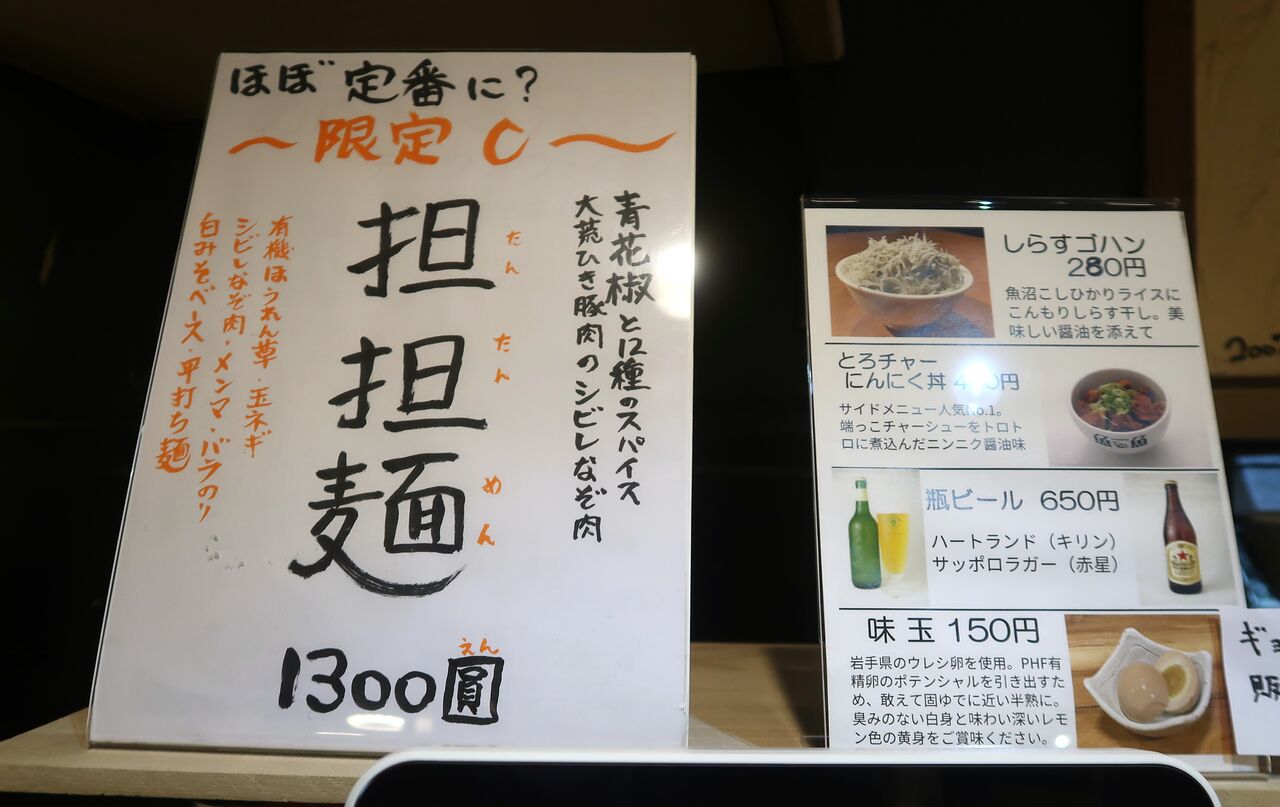 ほぼ定番に?
～限定C～
青花椒と12種のスパイス
大荒ひき豚肉のシビレなぞ肉
担担麺
たんたんめん
有機ほうれん草・玉ネギ
シビレなぞ肉・メンマ・バラのり
白みそベース・平打ち麺
1300圓
えん
しらすゴハン
280円
魚沼こしひかりライスに
こんもりしらす干し。美
味しい醤油を添えて
とろチャー
にんにく丼 円
サイドメニュー人気No.1。
端っこチャーシューをトロト
ロに煮込んだニンニク醤油味
瓶ビール 650円
ハートランド（キリン）
サッポロラガー（赤星）
味玉 150円
岩手県のウレシ卵を使用。PHF有
精卵のポテンシャルを引き出すた
め、敢えて固ゆでに近い半熟に。
臭みのない白身と味わい深いレモ
ン色の黄身をご賞味ください。